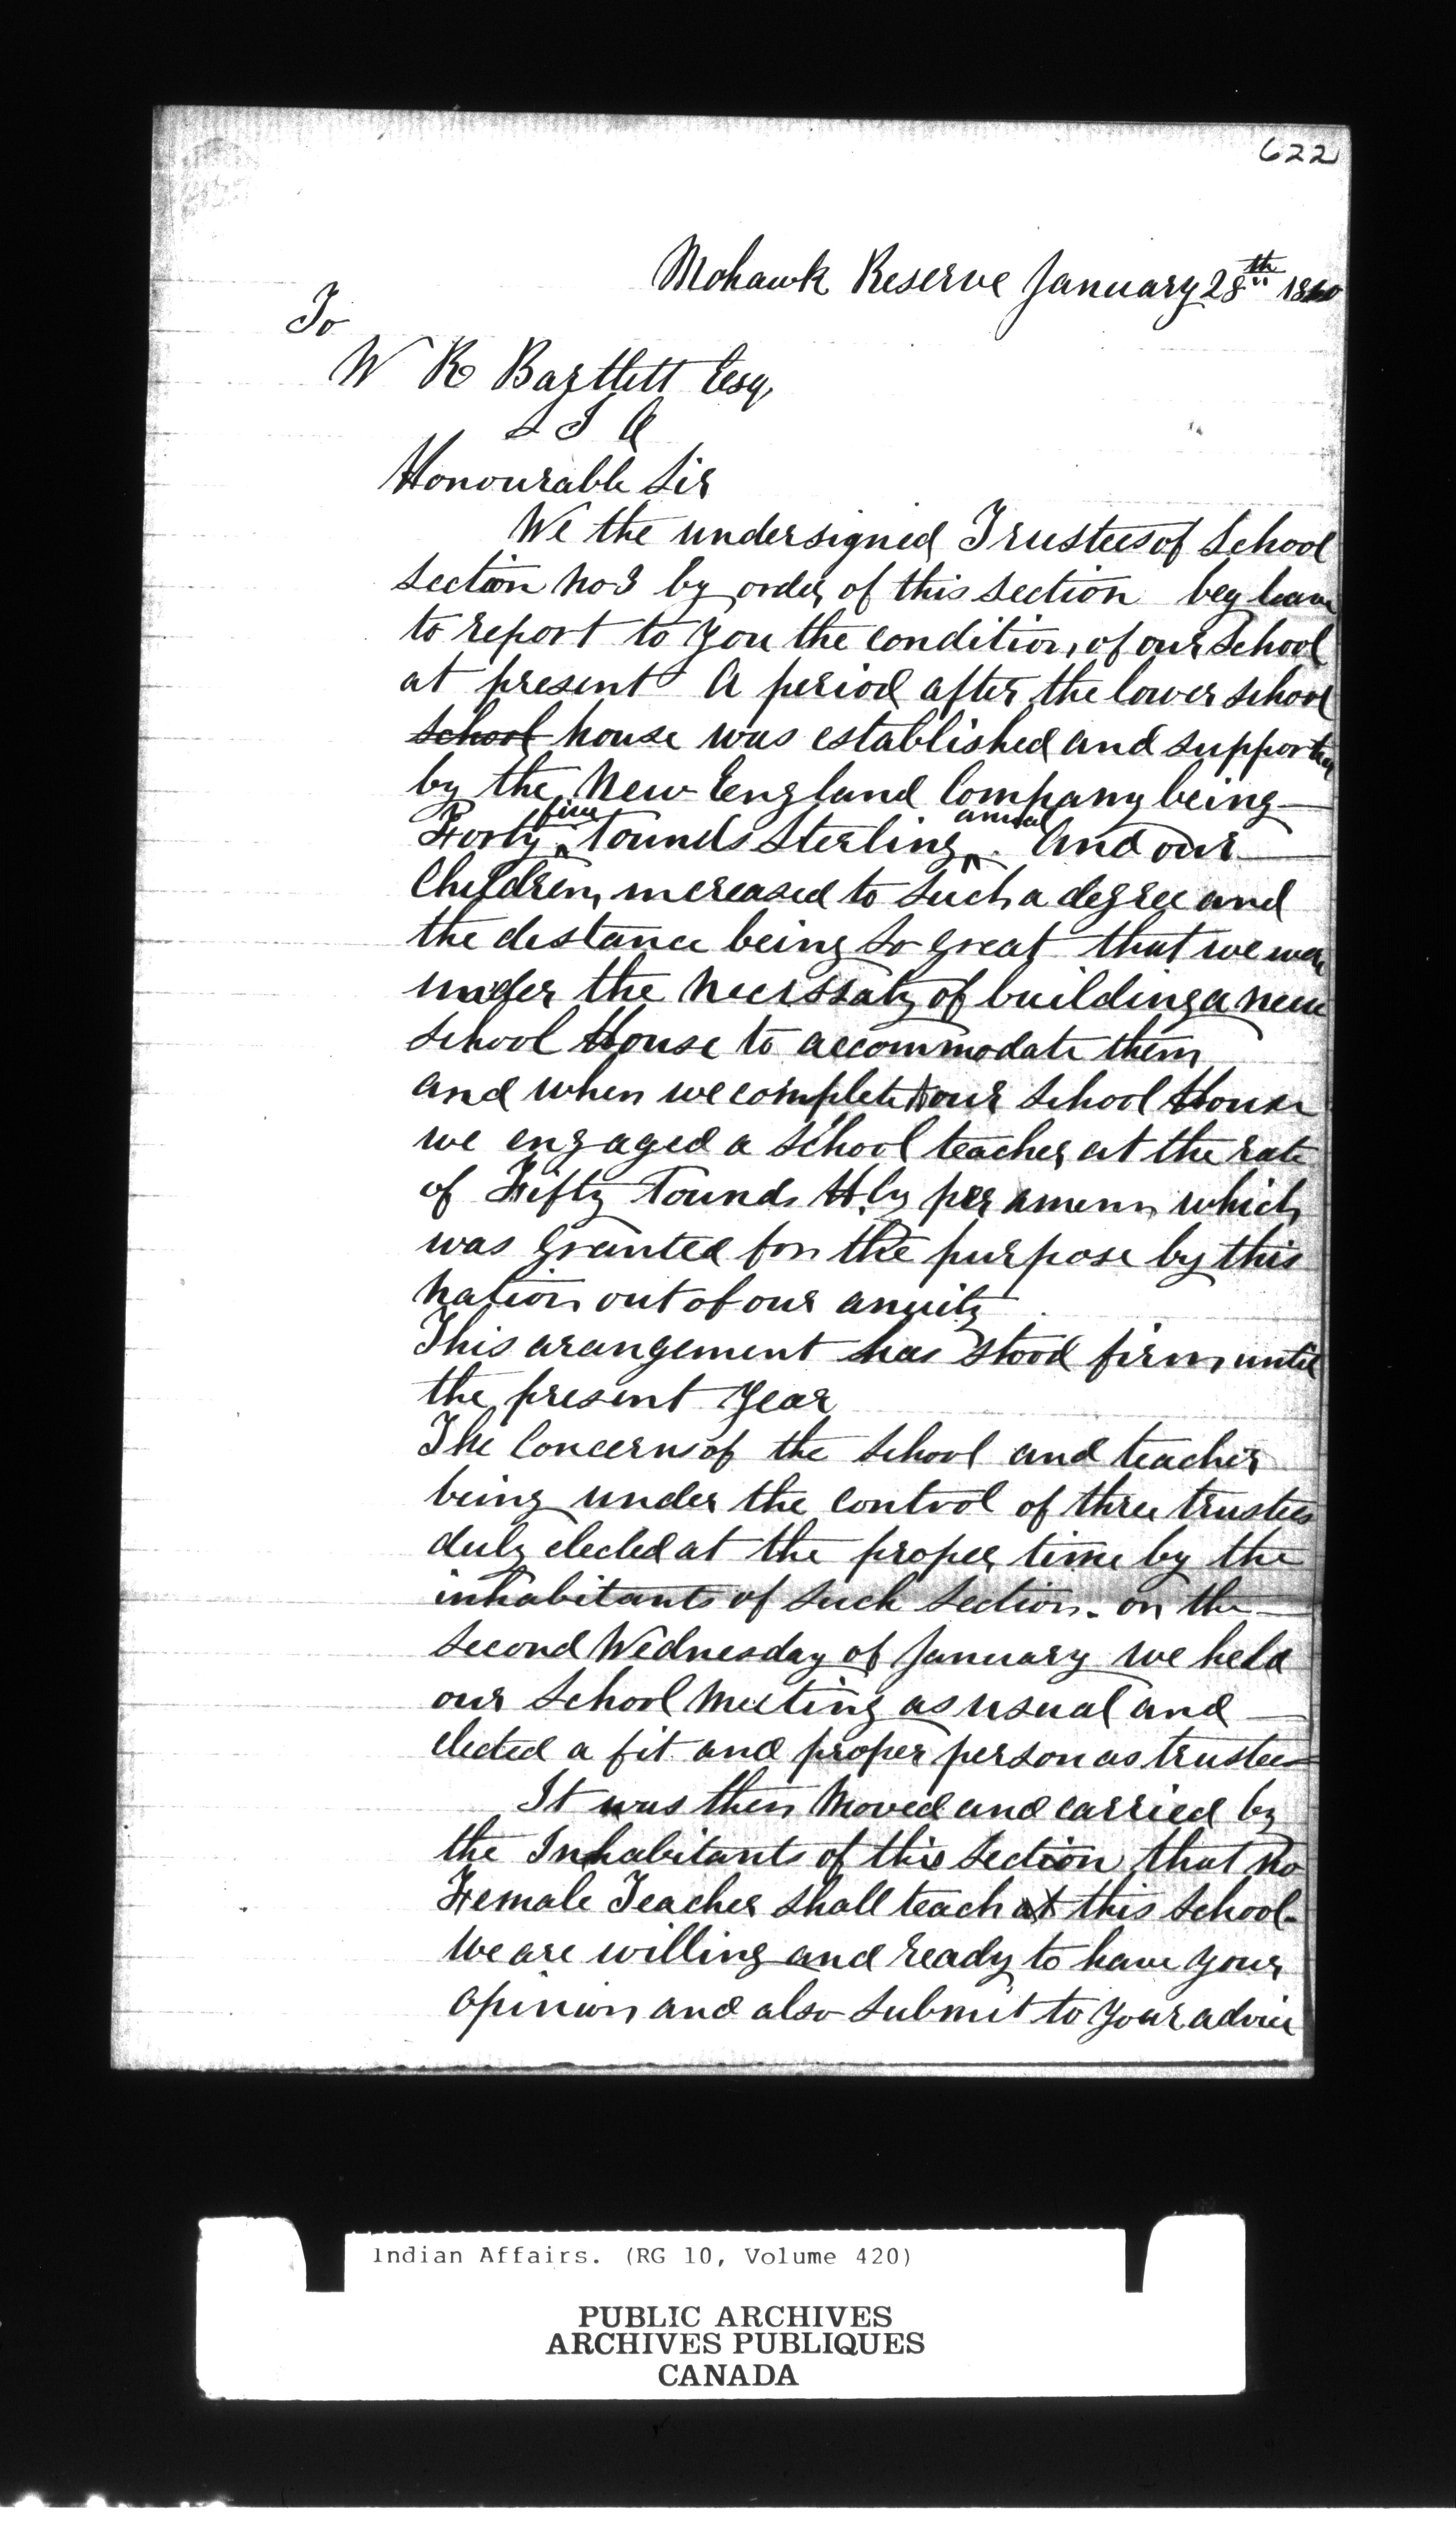 622
Mohawk Reserve January 28th 1860
To
W R Bartlett Esq
S I A
Honourable Sir
We the undersigned Trustees of School
section no 3 by order of this section beg leave
to report to you the condition of our School
at present A period after the lower school
school house was established and supported
by the New England Company being
Forty five Pounds Sterling annual. And our
Children increased to such a degree and
the distance being so great that we ware
under the necessaty of building a new
School House to accommodate them
and when we completed our School House
we engaged a School teacher at the rate
of Fifty Pounds per annum which
was granted for the purpose by this
nation out of our anuity
This arangement has stood firm until
the present year
The Concerns of the School and teacher
being under the control of three trustees
duly elected at the proper time by the
inhabitants of such Section. on the
second Wednesday of January we held
our School Meeting as usual and
elected a fit and proper person as trustee
It was then Moved and carried by
the Inhabitants of this Section that no
Female Teacher shall teach at this School.
We are willing and ready to have your
opinion and also submit to your advice
Indian Affairs. (RG 10, Volume 420)
PUBLIC ARCHIVES
ARCHIVES PUBLIQUES
CANADA